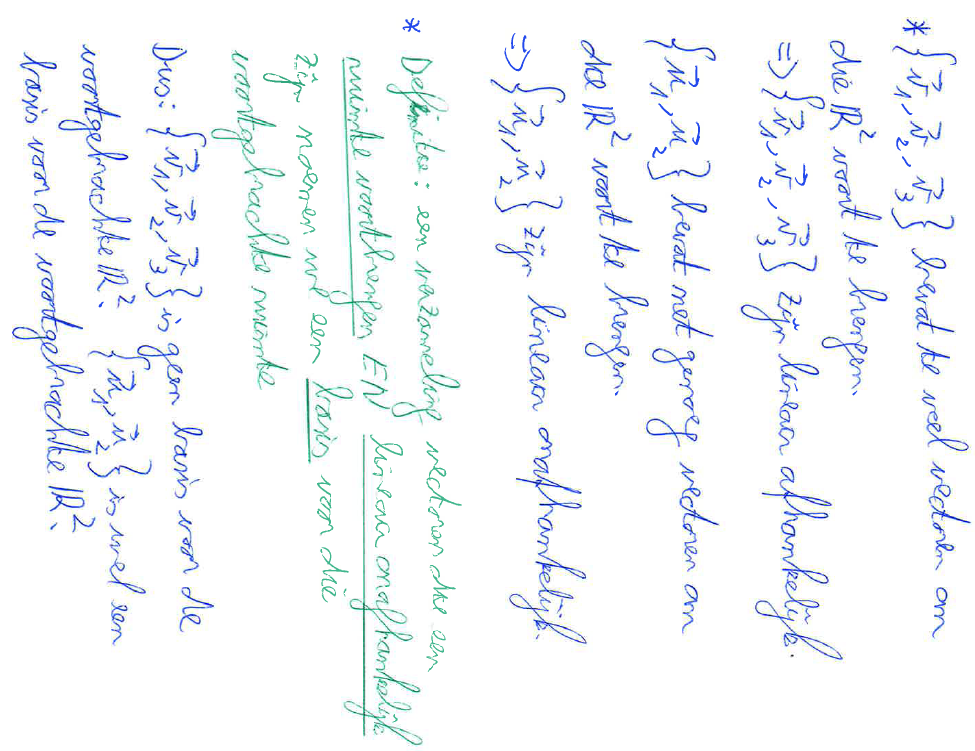 * {v⃗₁, v⃗₂, v⃗₃} bevat te veel vectoren om
die ℝ² voort te brengen.
=> {v⃗₁, v⃗₂, v⃗₃} zijn lineair afhankelijk.
{u⃗₁, u⃗₂} bevat net genoeg vectoren om
die ℝ² voort te brengen.
=> {u⃗₁, u⃗₂} zijn lineair onafhankelijk.
* Definitie: een verzameling vectoren die een
ruimte voortbrengen EN lineair onafhankelijk
zijn noemen we een basis voor die
voortgebrachte ruimte
Dus: {v⃗₁, v⃗₂, v⃗₃} is geen basis voor de
voortgebrachte ℝ². {u⃗₁, u⃗₂} is wel een
basis voor de voortgebrachte ℝ².